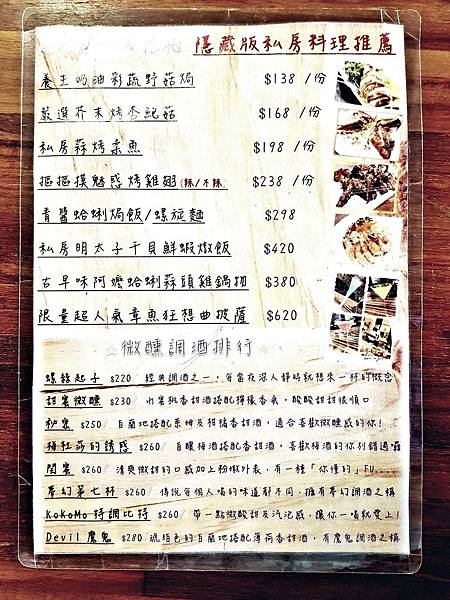 隱藏版私房料理推薦
養生奶油彩蔬野菇焗 $138 /份
嚴選芥末烤杏鮑菇 $168 /份
私房蒜烤柔魚 $198 /份
摳摳摸魅惑烤雞翅(辣/不辣) $238 /份
青醬蛤蜊焗飯/螺旋麵 $298
私房明太子干貝鮮蝦燉飯 $420
古早味阿嬤蛤蜊蒜頭雞鍋物 $380
限量超人氣章魚狂想曲披薩 $620
微醺調酒排行
螺絲起子 $220/ 經典調酒之一,每當夜深人靜時就想來一杯的概念
甜蜜微醺 $230/ 水蜜桃香甜酒搭配檸檬香氣,酸酸甜甜很順口
秘密 $250/ 白蘭地搭配 及柑橘香甜酒,適合喜歡微醺感的你!
梅杜莎的誘惑 $260/ 自釀梅酒搭配香甜酒,喜歡梅酒的你別錯過喔
閨蜜 $260/ 清爽微甜的口感加上粉嫩外表,有一種「你懂的」FU....
夢幻第七杯 $260/ 傳說每個人喝的味道都不同,擁有夢幻調酒之稱
KoKoMo特調比特 $260/ 帶一點微酸甜及汽泡感,讓你一喝就愛上!
Devil 魔鬼 $280 琥珀色的白蘭地搭配薄荷香甜酒,有魔鬼調酒之稱